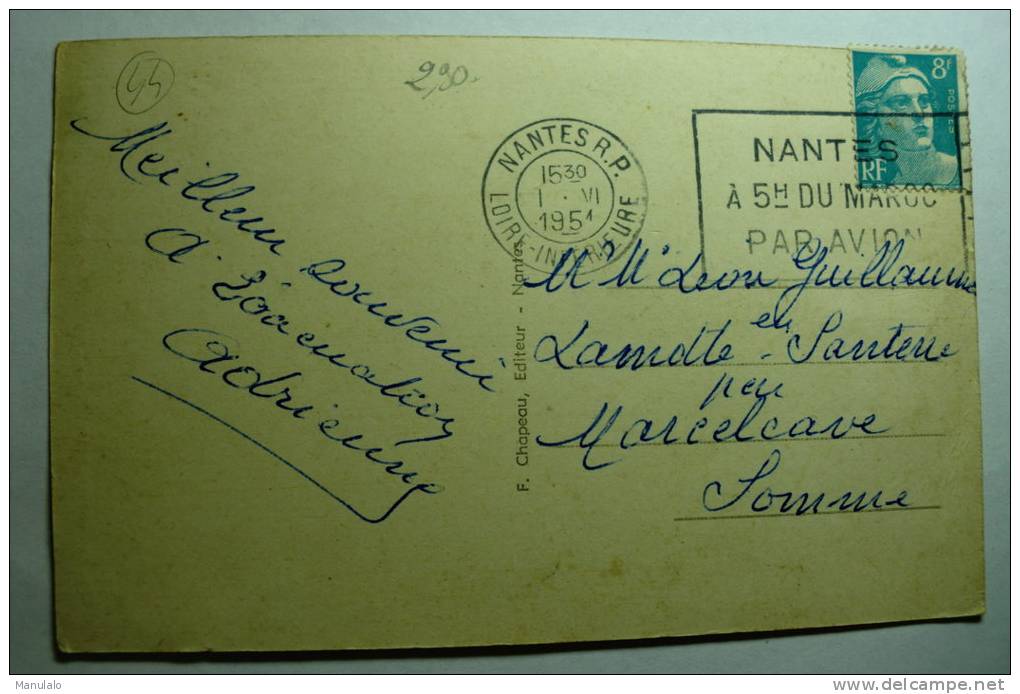 44
2,90
Meilleur souvenir
Adrienne
F. Chapeau, Editeur - Nantes
NANTES R.P.
15 30
1 · VI
1951
LOIRE-INFERIEURE
NANTES
À 5H DU MAROC
PAR AVION
8F
POSTES
RF
Mr Me Leon Guillaume
Lamotte en Santerre
par
Marcelcave
Somme
Manulalo
delcampe.net